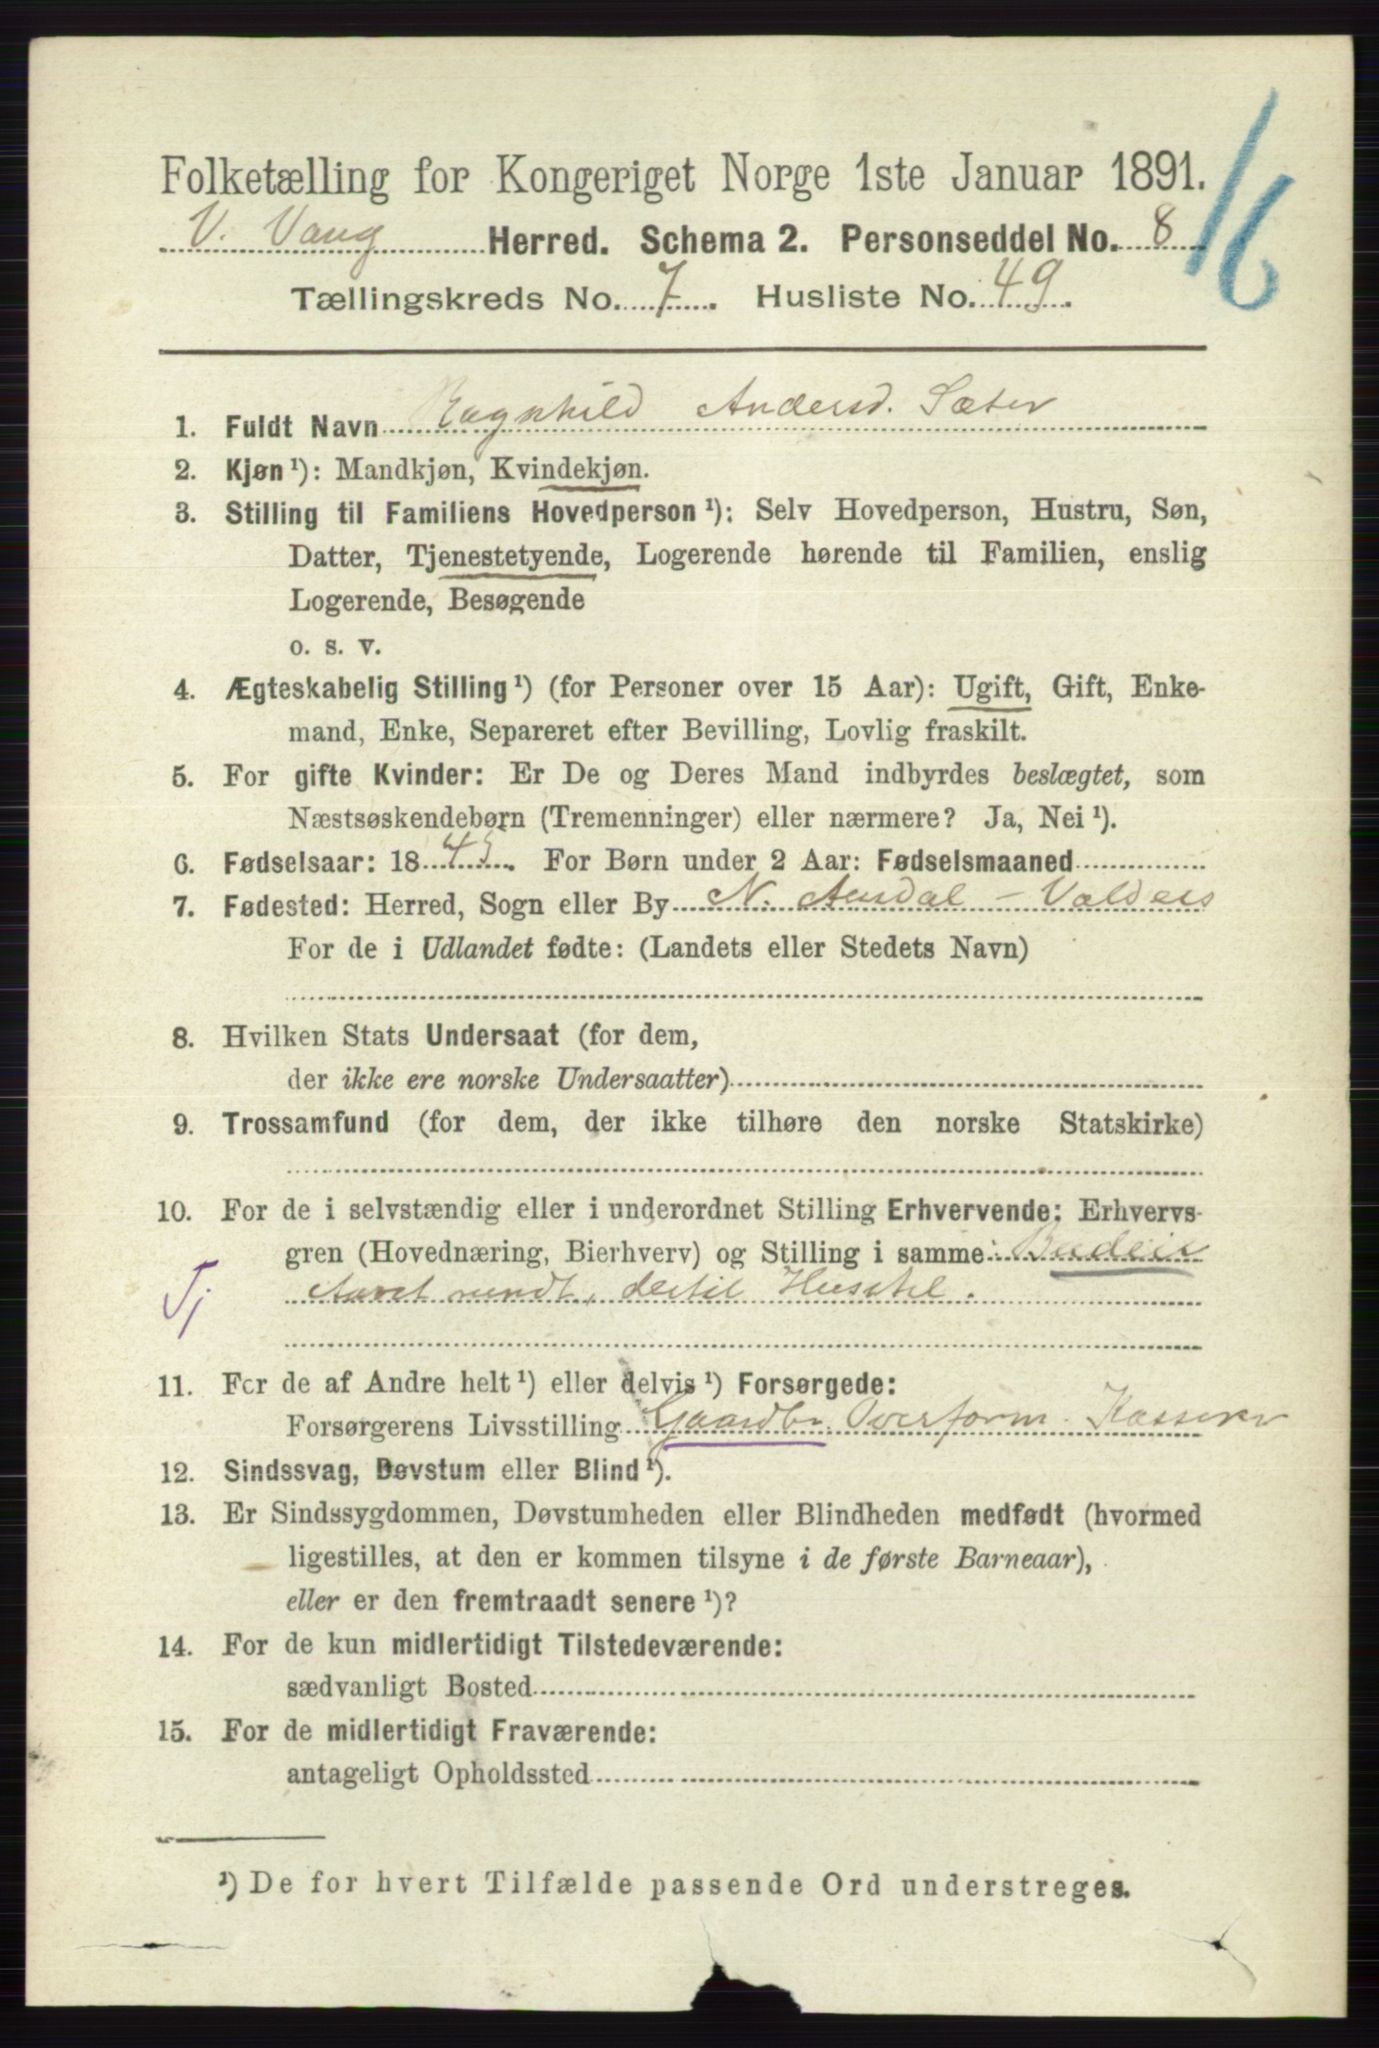 Folketælling for Kongeriget Norge 1ste Januar 1891.
16
V. Vang Herred. Schema 2. Personseddel No. 8
Tællingskreds No. 7. Husliste No. 49.
1. Fuldt Navn Ragnhild Andersd. Sæter
2. Kjøn ¹): Mandkjøn, Kvindekjøn.
3. Stilling til Familiens Hovedperson ¹): Selv Hovedperson, Hustru, Søn,
Datter, Tjenestetyende, Logerende hørende til Familien, enslig
Logerende, Besøgende
o. s. v.
4. Ægteskabelig Stilling ¹) (for Personer over 15 Aar): Ugift, Gift, Enke-
mand, Enke, Separeret efter Bevilling, Lovlig fraskilt.
5. For gifte Kvinder: Er De og Deres Mand indbyrdes beslægtet, som
Næstsøskendebørn (Tremenninger) eller nærmere? Ja, Nei ¹).
6. Fødselsaar: 1845. For Børn under 2 Aar: Fødselsmaaned
7. Fødested: Herred, Sogn eller By N. Aurdal - Valders
For de i Udlandet fødte: (Landets eller Stedets Navn)
8. Hvilken Stats Undersaat (for dem,
der ikke ere norske Undersaatter)
9. Trossamfund (for dem, der ikke tilhøre den norske Statskirke)
10. For de i selvstændig eller i underordnet Stilling Erhvervende: Erhvervs-
gren (Hovednæring, Bierhverv) og Stilling i samme: Budeie
Tj Aaret rundt, dertil Husstel.
11. For de af Andre helt ¹) eller delvis ¹) Forsørgede:
Forsørgerens Livsstilling Gaardbr. Overform. Kasserer
12. Sindssvag, Døvstum eller Blind ¹).
13. Er Sindssygdommen, Døvstumheden eller Blindheden medfødt (hvormed
ligestilles, at den er kommen tilsyne i de første Barneaar),
eller er den fremtraadt senere ¹)?
14. For de kun midlertidigt Tilstedeværende:
sædvanligt Bosted
15. For de midlertidigt Fraværende:
antageligt Opholdssted
¹) De for hvert Tilfælde passende Ord understreges.